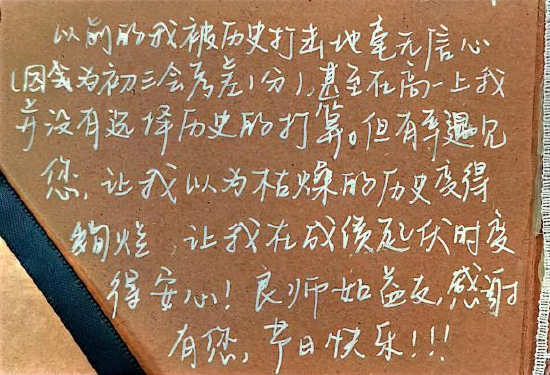 以前的我被历史打击地毫无信心
(因我为初三会考差1分),甚至在高一上我
并没有选择历史的打算。但有幸遇见
您,让我以为枯燥的历史变得
绚烂,让我在成绩起伏时变
得安心!良师如益友,感谢
有您,节日快乐!!!